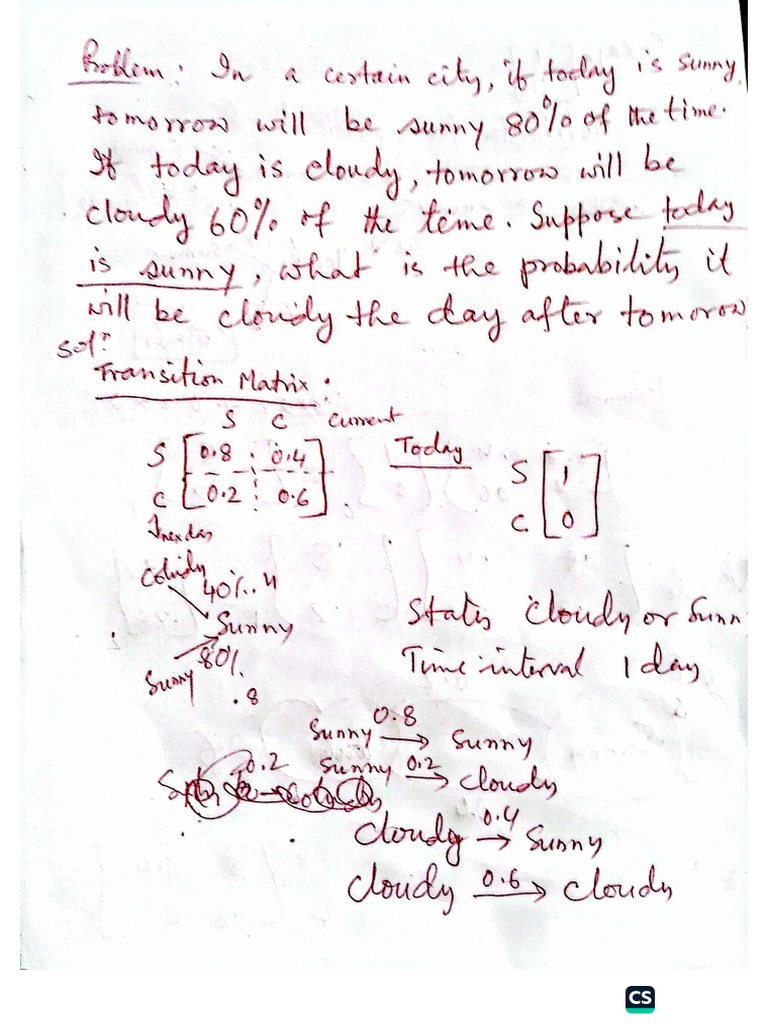 Problem: In a certain city, if today is sunny,
tomorrow will be sunny 80% of the time.
If today is cloudy, tomorrow will be
cloudy 60% of the time. Suppose today
is sunny, what is the probability it
will be cloudy the day after tomorow
Solⁿ:
Transition Matrix:
S C current
S [0.8 0.4]
C [0.2 0.6]
Today
S [1]
C [0]
40% .4
Sunny
80%
Sunny
.8
States cloudy or Sunn
Time interval 1 day
Sunny 0.8 → Sunny
Sunny 0.2 → cloudy
0.2
cloudy 0.4 → Sunny
cloudy 0.6 → cloudy
CS